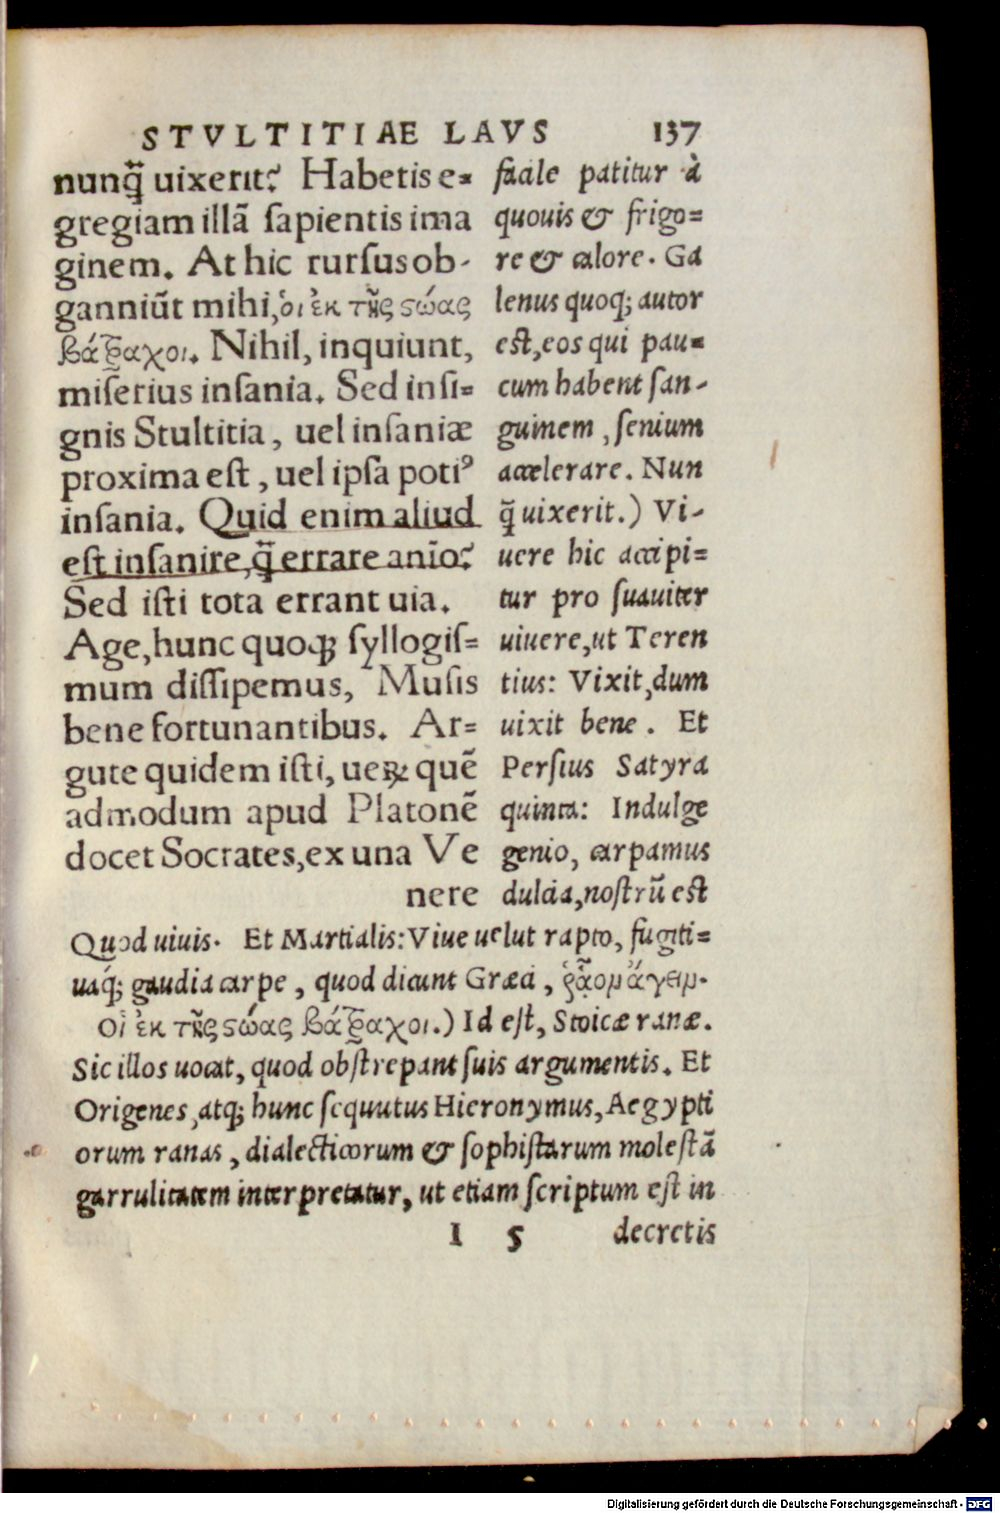 STVLTITIAE LAVS 137
nunq̃ uixerit? Habetis e=
gregiam illā sapientis ima
ginem. At hic rursus ob-
ganniūt mihi, οἱ ἐκ τῆς ϛοᾶς
βάτραχοι. Nihil, inquiunt,
miserius insania. Sed insi=
gnis Stultitia, uel insaniæ
proxima est, uel ipsa potiꝰ
insania. Quid enim aliud
est insanire, q̃ errare anīo?
Sed isti tota errant uia.
Age, hunc quoqꝫ syllogis=
mum dissipemus, Musis
bene fortunantibus. Ar=
gute quidem isti, uerꝝ quē
admodum apud Platonē
docet Socrates, ex una Ve
nere
ficile patitur à
quouis & frigo=
re & calore. Ga
lenus quoqꝫ autor
est, eos qui pau=
cum habent san-
guinem, senium
accelerare. Nun
q̃ uixerit.) Vi-
uere hic accipi=
tur pro suauiter
uiuere, ut Teren
tius: Vixit, dum
uixit bene. Et
Persius Satyra
quinta: Indulge
genio, carpamus
dulcia, nostrū est
Quod uiuis. Et Martialis: Viue uelut rapto, fugiti=
uaqꝫ gaudia carpe, quod dicunt Græci,
Οἱ ἐκ τῆς ϛοᾶς βάτραχοι.) Id est, Stoicæ ranæ.
Sic illos uocat, quod obstrepant suis argumentis. Et
Origenes, atqꝫ hunc sequutus Hieronymus, Aegypti
orum ranas, dialecticorum & sophistarum molestā
garrulitatem interpretatur, ut etiam scriptum est in
I 5 decretis
Digitalisierung gefördert durch die Deutsche Forschungsgemeinschaft - DFG